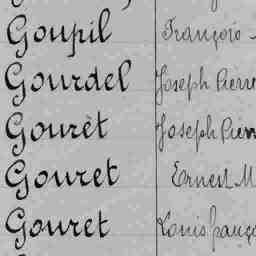 Goupil François
Gourdel Joseph Pierre
Gourèt Joseph Pierr
Gouret Ernest M
Gouret Louis franço